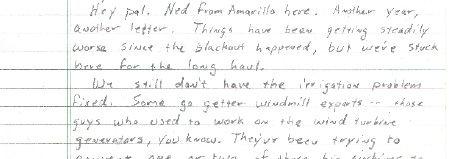 Hey pal. Ned from Amarillo here. Another year,
another letter. Things have been getting steadily
worse since the blackout happened, but we're stuck
here for the long haul.
We still don't have the irrigation problem
fixed. Some go getter windmill experts -- those
guys who used to work on the wind turbine
generators, you know. They've been trying to
convert one or two of these big turbines to